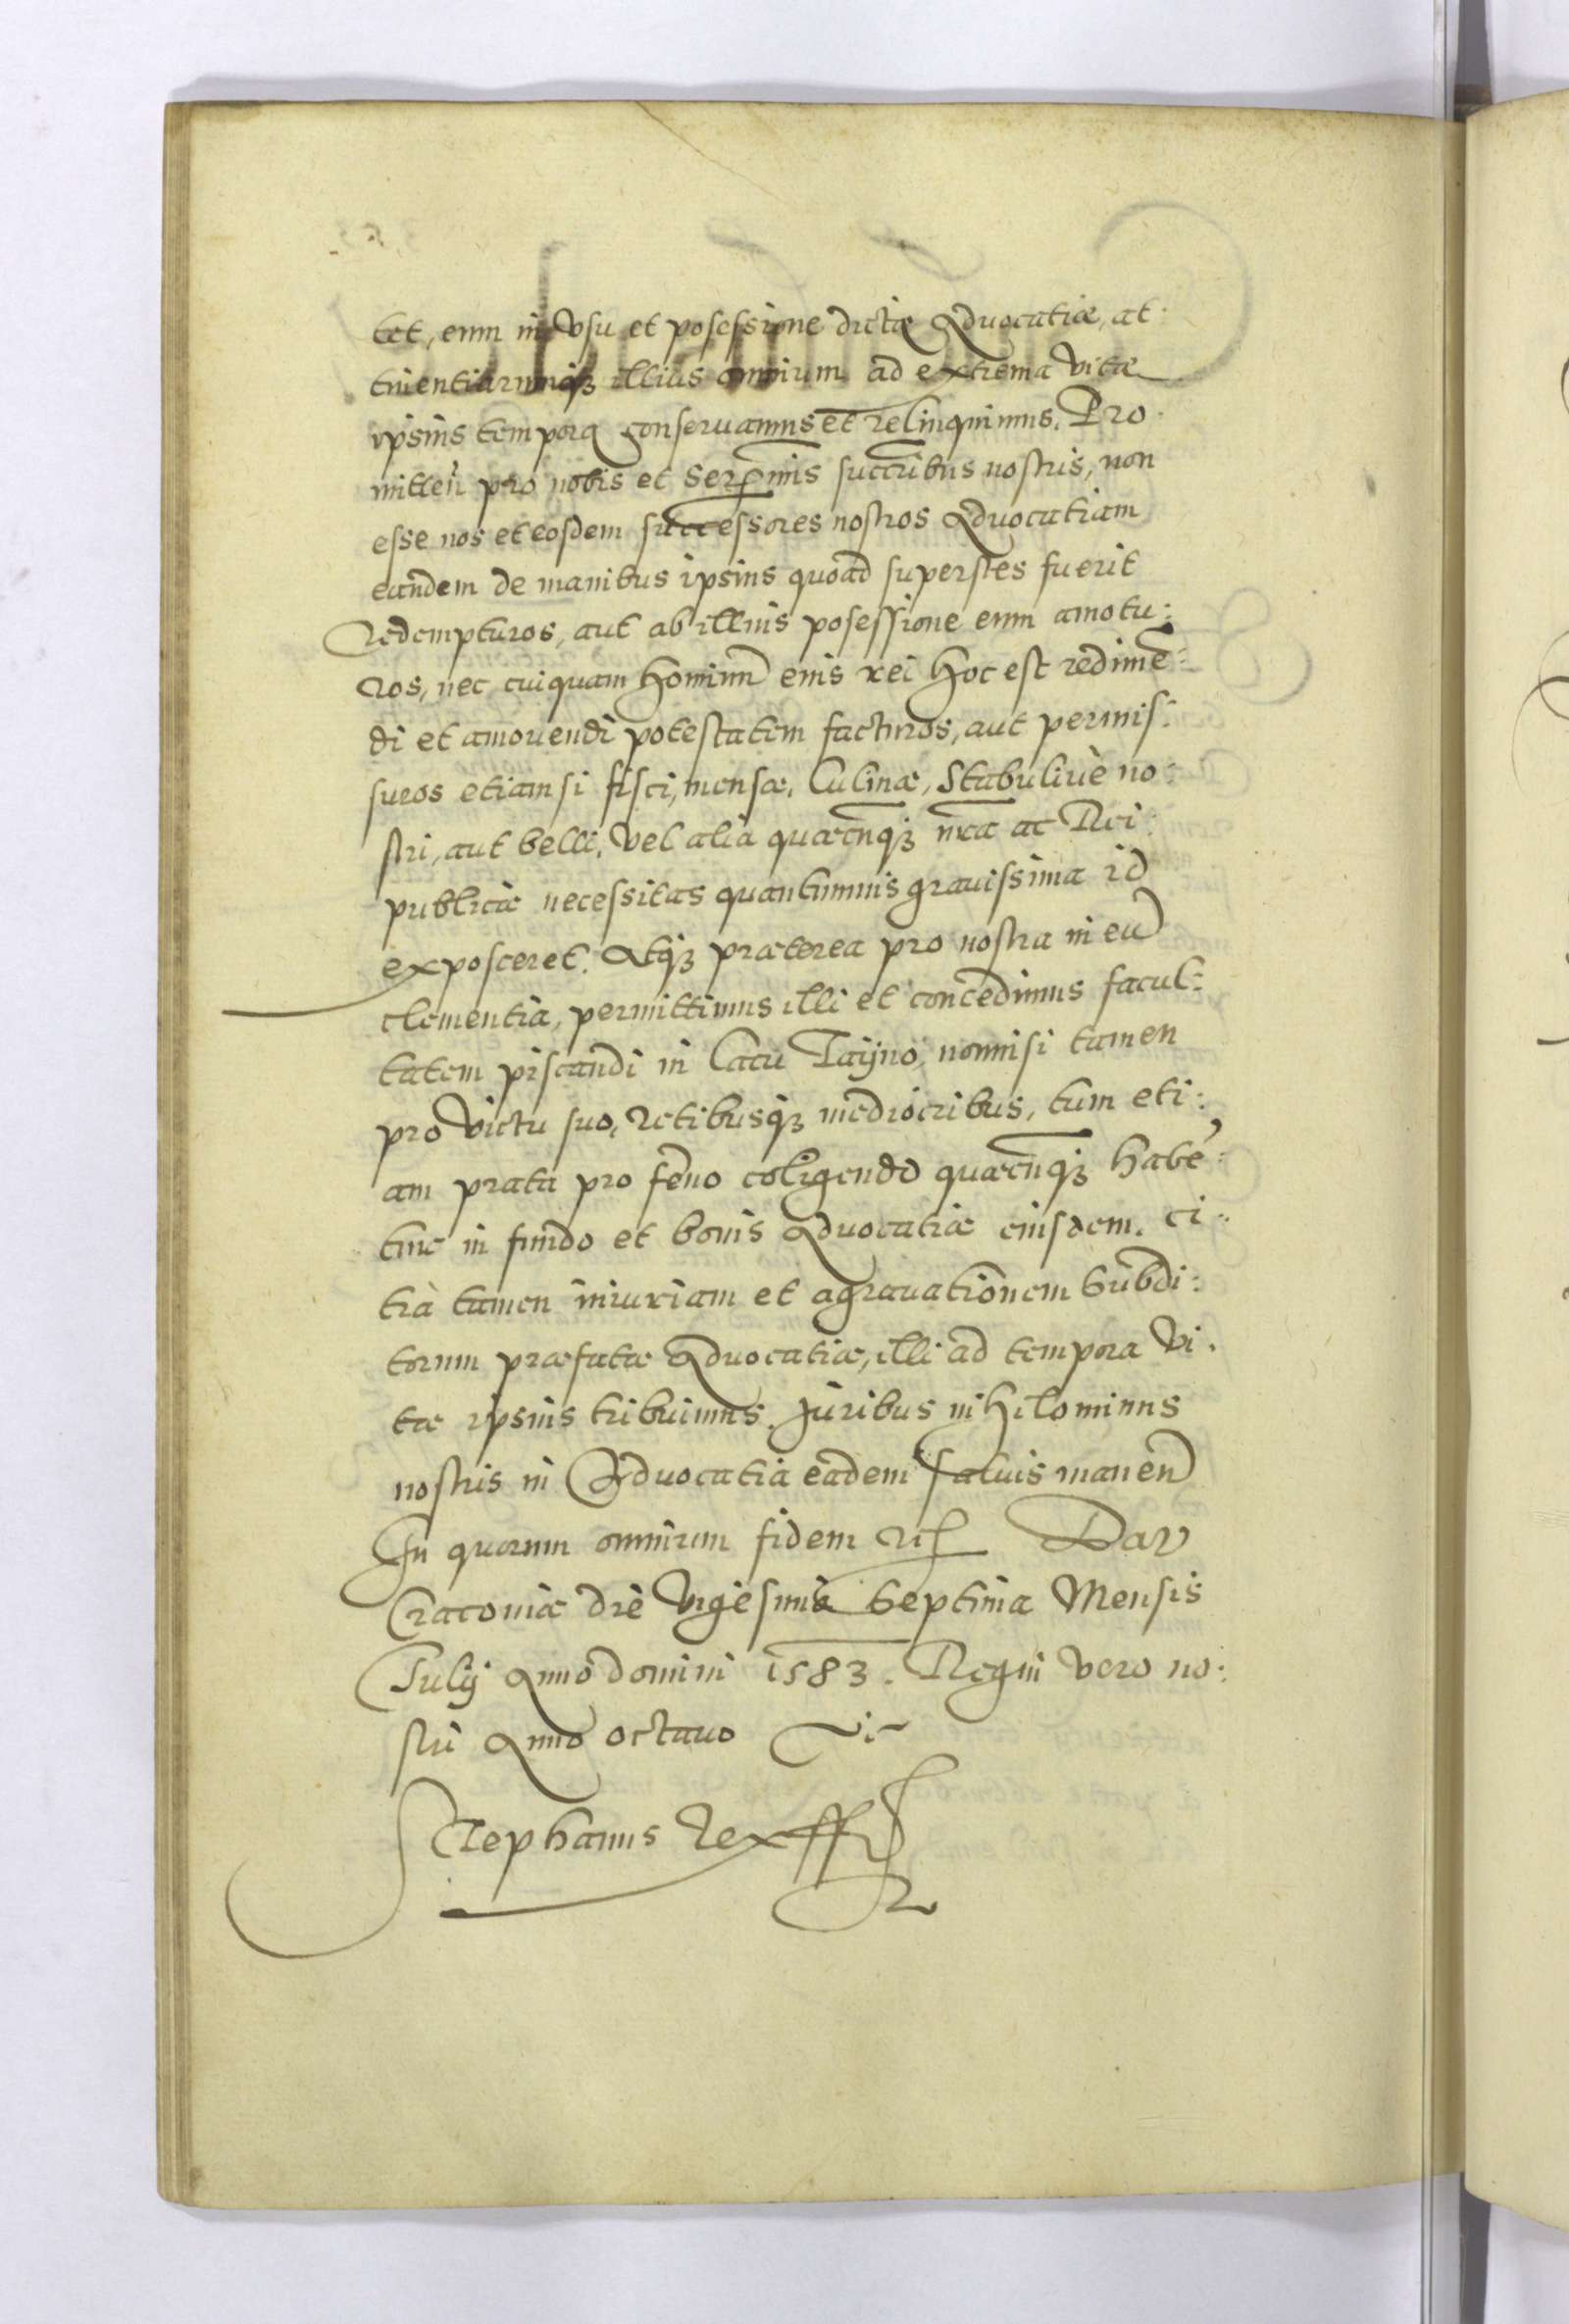 tet, eum in Vsu et posessione dictæ Aduocatiæ, at:
tinentiarumq₃ illius omnium ad extrema vitæ
ipsius tempora conseruamus et relinquimus. Pro:
mitteñ pro nobis et Serẽmis succribus nostris, non
esse nos et eosdem successores nostros Aduocatiam
eandem de manibus ipsius quoad superstes fuerit
Redempturos, aut ab illius posessione eum amotu:
ros, nec cuiquam hominũ eius rei hoc est redimē:
di et amouendi potestatem facturos, aut permis:
suros etiam si fisci, mensæ, Culinæ, Stabuliuè no:
stri, aut belli, Vel alia quæcũq₃ nr̃a ac Rei:
publicæ necessitas quantumuis grauissima id
exposceret. Atq₃ præterea pro nostra in eũ
clementia, permittimus illi et concedimus facul:
tatem piscandi in Lacu Tayno, nonnisi tamen
pro victu suo, retibusq₃ mediocribus, tum eti:
am prata pro feno coligendo quæcũq₃ habē:
tur in fundo et bonis Aduocatiæ eiusdem. ci:
trà tamen iniuriam et agrauationem Subdi:
torum præfatæ Aduocatiæ, illi ad tempora Vi:
tæ ipsius tribuimus. Juribus nihilominus
nostris in Aduocatia eadem saluis manen̄
In quorum omnium fidem Dat̄
Cracouiæ die Vigesima Septima Mensis
Julij Anno domini 1583. Regni vero no:
stri Anno octauo
Stephanus Rex ff